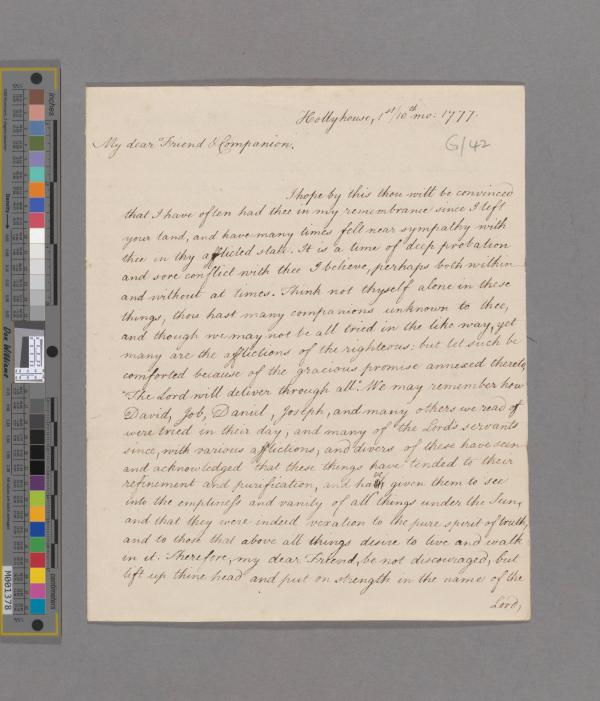 Hollyhouse, 1st/10th mo: 1777.
G/42
My dear Friend & Companion,
I hope by this thou will be convinced
that I have often had thee in my remembrance since I left
your land, and have many times felt near sympathy with
thee in thy afflicted state. It is a time of deep probation
and sore conflict with thee I believe, perhaps both within
and without at times. Think not thyself alone in these
things, thou hast many companions unknown to thee,
and though we may not be all tried in the like way, yet
many are the afflictions of the righteous: but let such be
comforted because of the gracious promise annexed thereto,
"The Lord will deliver through all". We may remember how
David, Job, Daniel, Joseph, and many others we read of
were tried in their day, and many of the Lord's servants
since, with various afflictions, and divers of these have seen
and acknowledged that these things have tended to their
refinement and purification, and have given them to see
into the emptiness and vanity of all things under the Sun,
and that they were indeed vexation to the pure spirit of truth,
and to those that above all things desire to live and walk
in it. Therefore, my dear Friend, be not discouraged, but
lift up thine head and put on strength in the name of the
Lord,
inches
centimetres
Don Williams
M001378